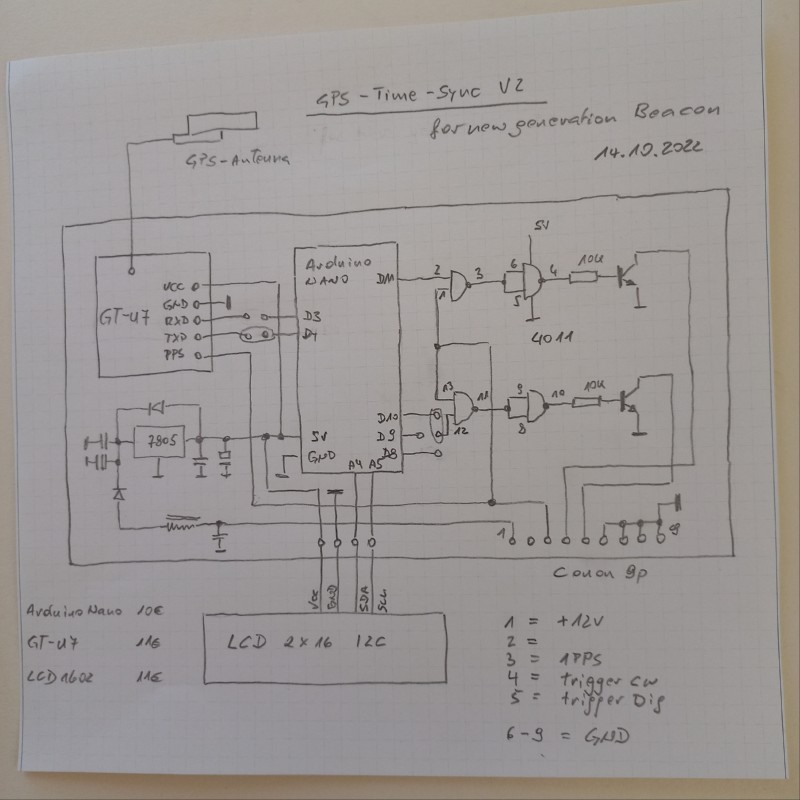 GPS-Time-Sync V2
for new generation Beacon
14.10.2022
GPS-Antenna
GT-u7
VCC
GND
RXD
TXD
PPS
Arduino
NANO
D11
D3
D4
D10
D9
D8
5V
GND
A4 A5
2
1
3
6
5
4
5V
10k
4011
13
12
11
9
8
10
10k
7805
1
9
Canon 9p
VCC
GND
SDA
SCL
LCD 2x16 I2C
Arduino Nano 10€
GT-u7 11€
LCD1602 11€
1 = +12V
2 =
3 = 1PPS
4 = trigger CW
5 = trigger Dig
6-9 = GND